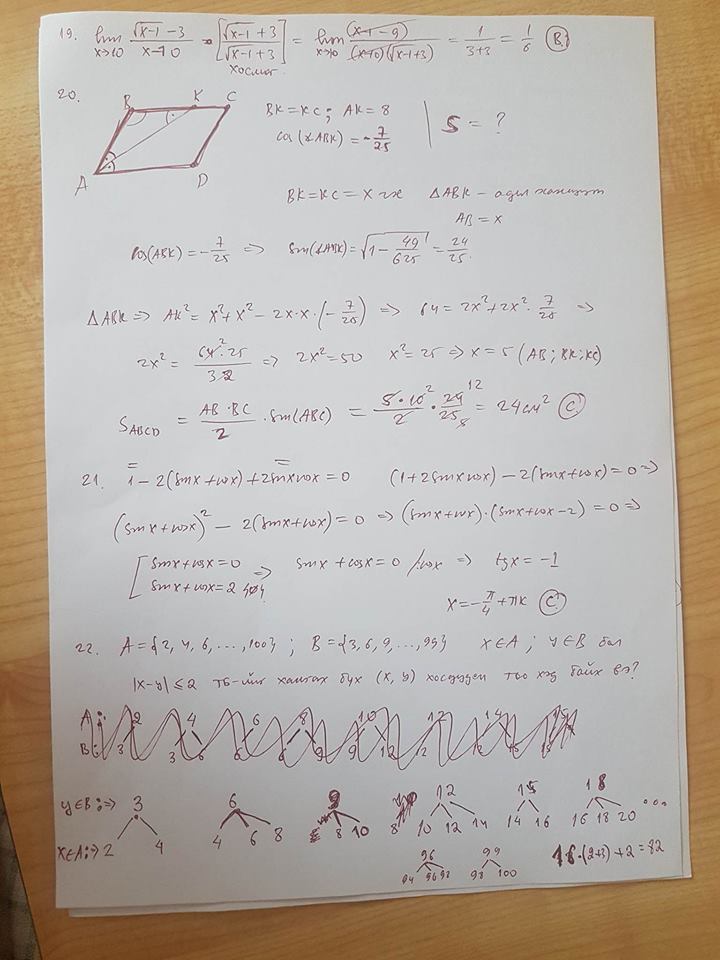 19. lim x→10 (√(x-1) - 3)/(x-10) = [(√(x-1) + 3)/(√(x-1) + 3)] = lim x→10 (x-1-9)/((x-10)(√(x-1)+3)) = 1/(3+3) = 1/6 (B)
хосмог
20.
B K C
A D
BK = KC; AK = 8
cos(∡ABK) = -7/25
S = ?
BK = KC = x гэж ΔABK - адил хажуут
AB = x
cos(ABK) = -7/25 => sin(∡ABK) = √(1 - 49/625) = 24/25.
ΔABK => AK² = x² + x² - 2x·x·(-7/25) => 64 = 2x² + 2x²·7/25 =>
2x² = 64·25/32 => 2x² = 50 x² = 25 => x = 5 (AB; BK; KC)
S ABCD = AB·BC/2 · sin(ABC) = 5·10/2 · 24/25 = 24 см² (C)
21. 1 - 2(sinx+cosx) + 2sinxcosx = 0 (1+2sinxcosx) - 2(sinx+cosx) = 0 =>
(sinx+cosx)² - 2(sinx+cosx) = 0 => (sinx+cosx)·(sinx+cosx-2) = 0 =>
[ sinx+cosx = 0 => sinx + cosx = 0 /:cosx => tgx = -1
sinx+cosx = 2
x = -π/4 + πk (C)
22. A = {2, 4, 6, ..., 100}; B = {3, 6, 9, ..., 99} x∈A; y∈B бол
|x-y| ≤ 2 тб-ийг хангах бүх (x, y) хосуудын тоо хэд байх вэ?
A: 2 4 6 8 10 12 14
B: 3 3 6 6 9 9 12 12
y∈B => 3 6 9 12 15 18
x∈A => 2 4 4 6 8 8 10 10 12 14 14 16 16 18 20 ...
96 99
94 96 98 98 100
16·(2+3)+2 = 82